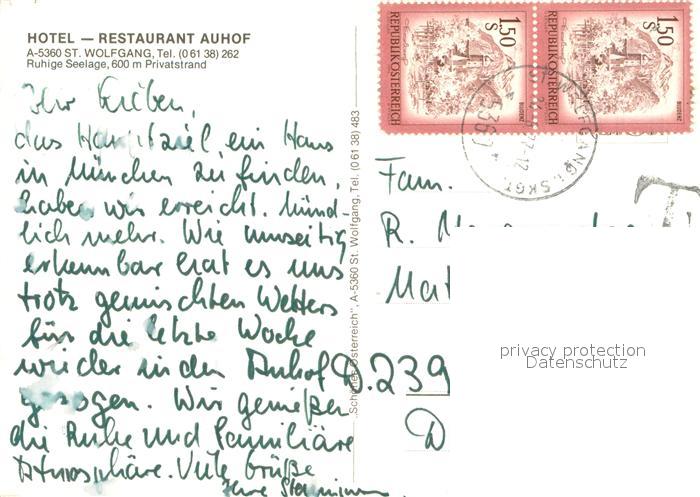 HOTEL — RESTAURANT AUHOF
A-5360 ST. WOLFGANG, Tel. (0 61 38) 262
Ruhige Seelage, 600 m Privatstrand
Ihr Lieben,
das Hauptziel, ein Haus
in München zu finden,
haben wir erreicht. Münd-
lich mehr. Wie umseitig
erkennbar hat es uns
trotz gemischten Wetters
für die letzte Woche
wieder in den Auhof
gezogen. Wir genießen
die Ruhe und familiäre
Atmosphäre. Viele Grüße
Ihre
"Schönes Österreich", A-5360 St. Wolfgang, Tel. (0 61 38) 483
1.50 S
REPUBLIK ÖSTERREICH
BLUDENZ
1.50 S
REPUBLIK ÖSTERREICH
BLUDENZ
5360
Fam.
R.
D.239
D
privacy protection
Datenschutz